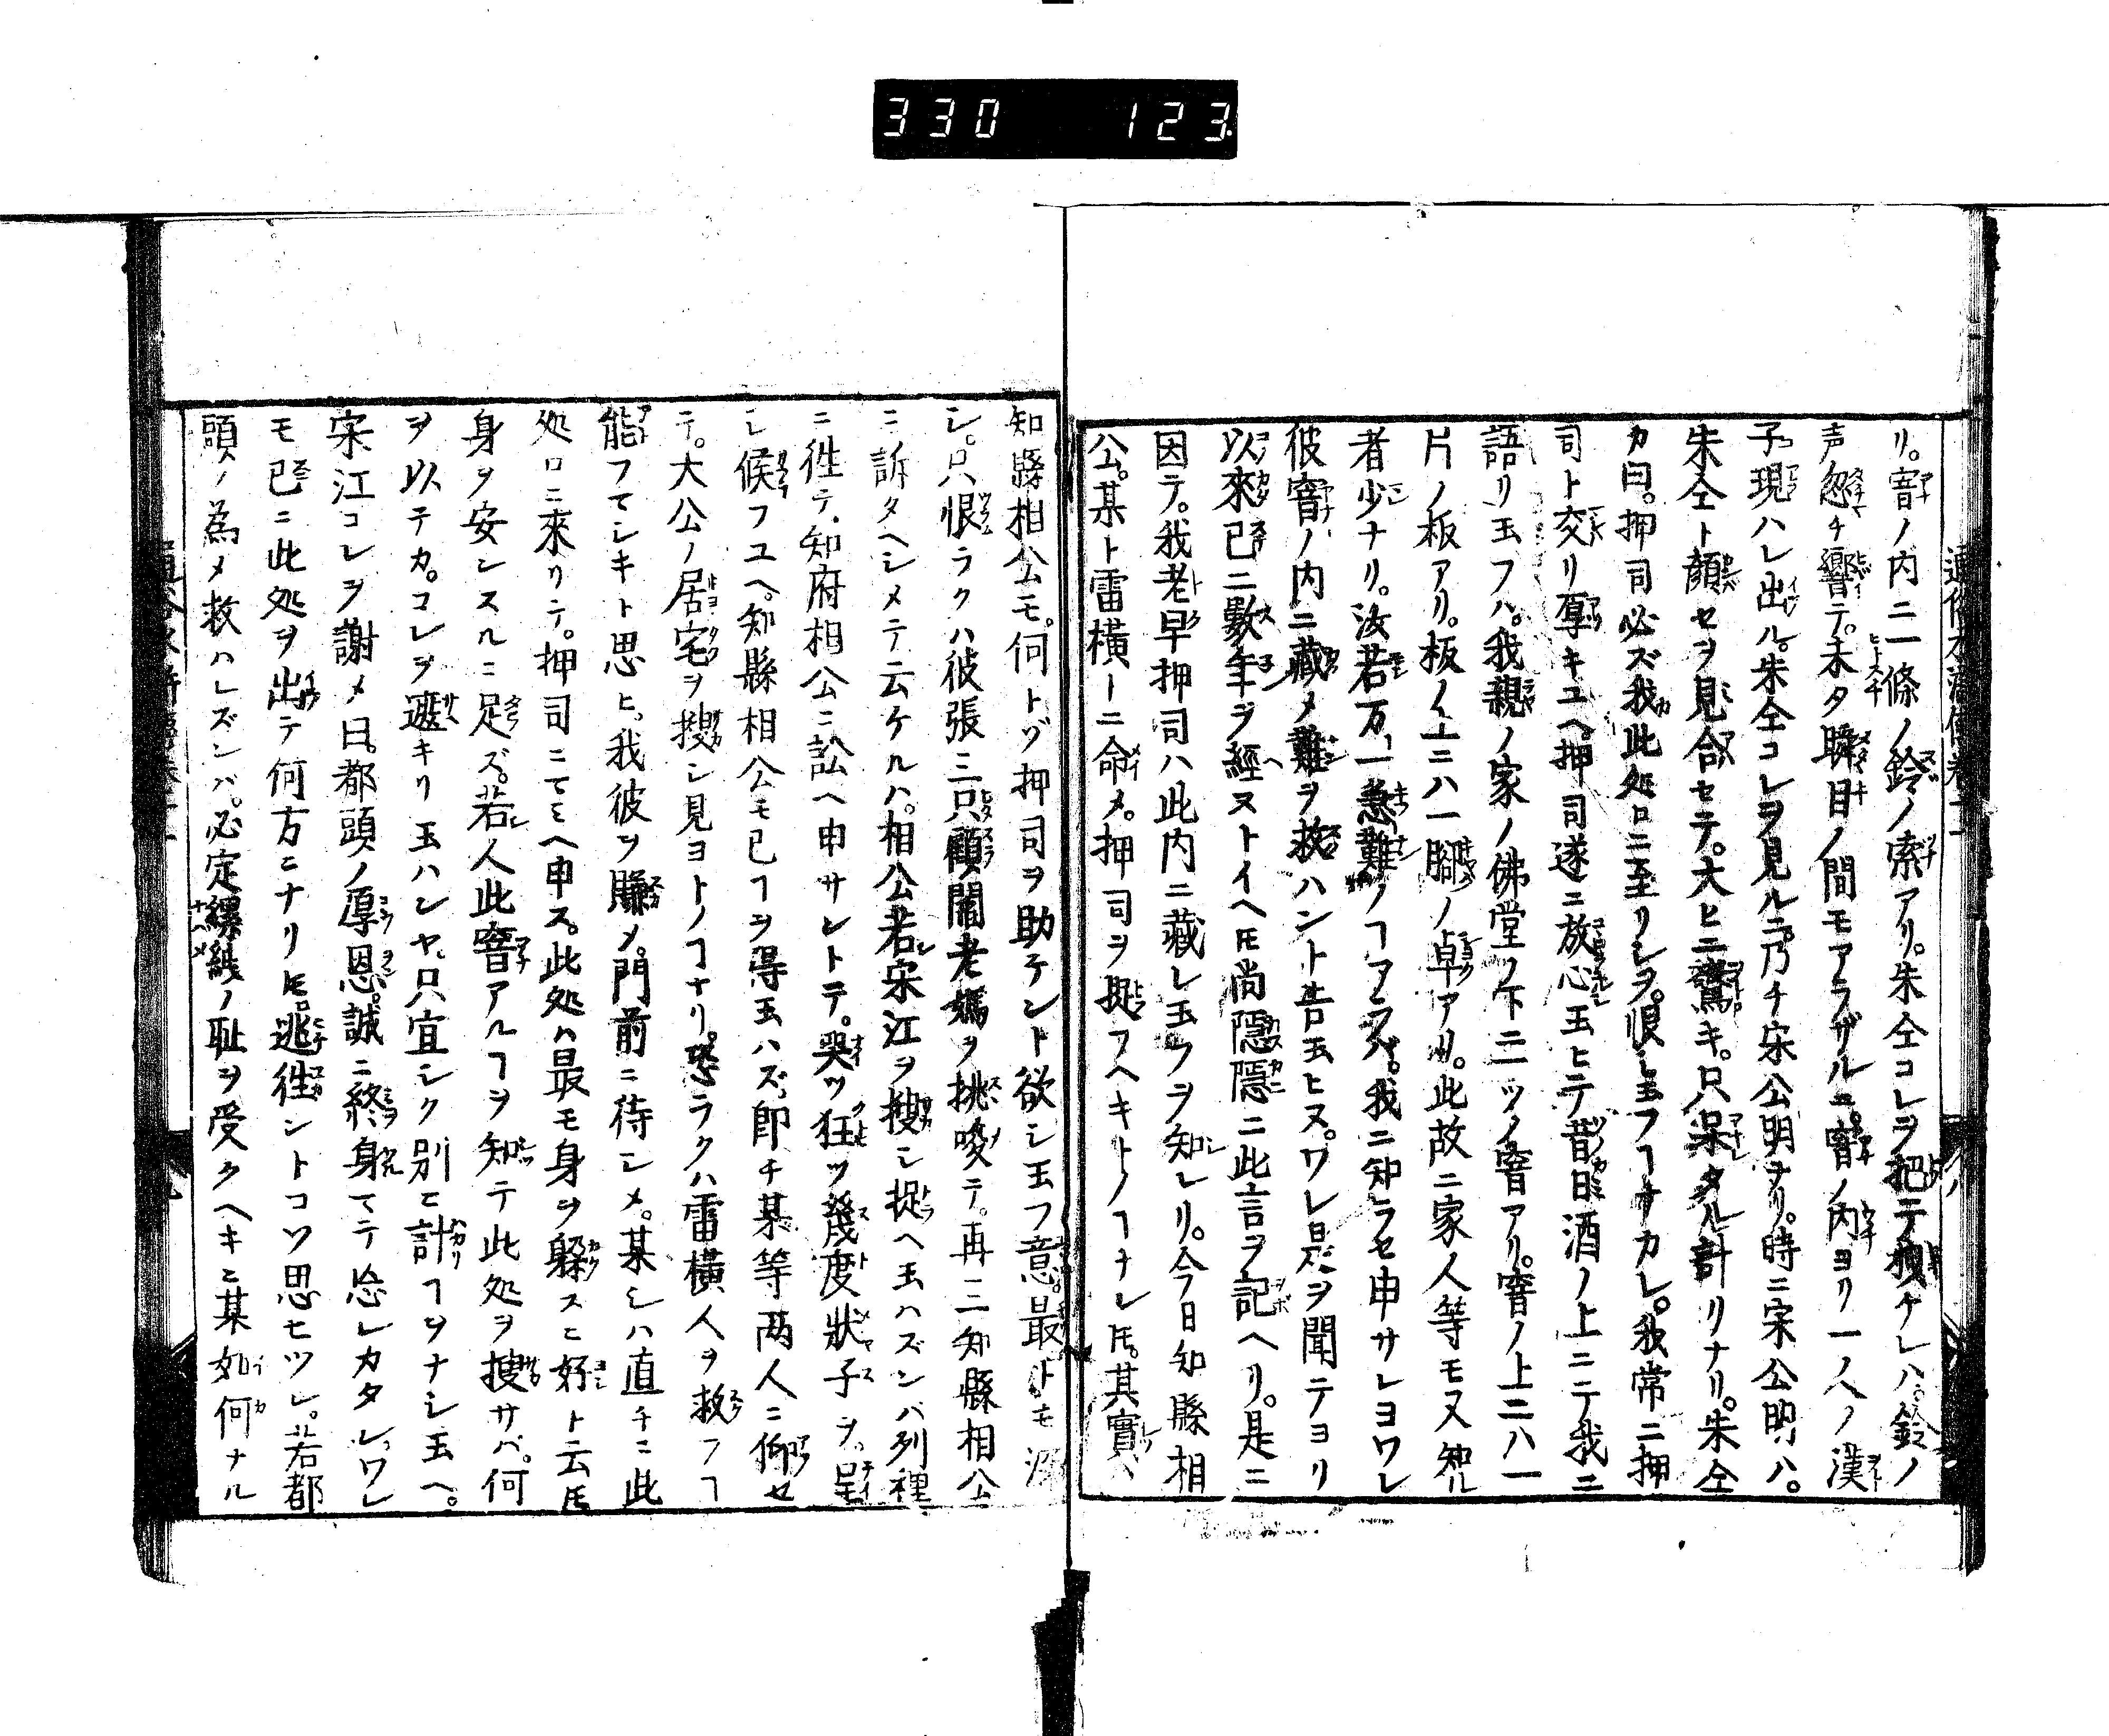 330 123
リ。窨ノ内ニ一條ノ鈴ノ索アリ。朱仝コレヲ把テ拽ケレハ。鈴ノ
声忽チ響テ。未タ瞬目ノ間モアラザルニ。窨ノ内ヨリ一人ノ漢
子現ハレ出ル。朱仝コレヲ見ルニ。乃チ宋公明ナリ。時ニ宋公明ハ。
朱仝ト顔セヲ見合セテ。大ヒニ驚キ。只呆タル計リナリ。朱仝
カ曰。押司必ズ我此処ロニ至リシヲ。恨ミ玉フヿナカレ。我常ニ押
司ト交リ厚キユヘ。押司遂ニ放心玉ヒテ昔日酒ノ上ニテ我ニ
語リ玉フハ。我親ノ家ノ佛堂ノ下ニ一ツノ窨アリ。窨ノ上ニハ一
片ノ板アリ。板イ上ニハ一腳ノ卓アリ。此故ニ家人等モ又知ル
者少ナリ。汝若万一急難ノヿアラバ。我ニ知ラセ申サレヨワレ
彼窨ノ内ニ藏メ難ヲ救ハント告玉ヒヌ。ワレ是ヲ聞テヨリ
以來已ニ數年ヲ經ヌトイヘ𪜈尚隱隱ニ此言ヲ記ヘリ。是ニ
因テ。我老早押司ハ此内ニ藏レ玉フヲ知レリ。今日知縣相
公。某ト雷橫トニ命メ。押司ヲ捉フヘキトノヿナレ𪜈。其實ハ
知縣相公モ。何トゾ押司ヲ助ケント欲シ玉フ意。最トモ深
シ。只恨ラクハ彼張三只顧閻老媽ヲ挑唆テ。再三知縣相公
ニ訴タヘシメテ云ケルハ。相公若宋江ヲ搜シ捉ヘ玉ハズンバ列裡
ニ徃テ、知府相公ニ訟ヘ申サレトテ。哭ツ狂ツ幾度狀子ヲ。呈
シ候フユヘ。知縣相公モ已ヿヲ得玉ハズ。即チ某等兩人ニ仰セ
テ。大公ノ居宅ヲ搜シ見ヨトノヿナリ。恐ラクハ雷橫人ヲ救フヿ
能フマシキト思ヒ。我彼ヲ賺メ。門前ニ待シメ。某シハ直チニ此
処ロニ來リテ。押司ニマミヘ申ス。此処ハ最モ身ヲ躱スニ好ト云𪜈
身ヲ安ンスルニ足ズ。若人此窨アルヿヲ知テ此処ヲ搜サバ。何
ヲ以テカ。コレヲ遮キリ玉ハンヤ。只宜シク別ニ計ヿヲナシ玉ヘ。
宋江コレヲ謝メ曰。都頭ノ厚恩。誠ニ終身マテ忘レカタレ。ワレ
モ已ニ此処ヲ出テ何方ニナリ𪜈。逃徃ントコソ思ヒツレ。若都
頭ノ為メ救ハレズンバ。必定縲紲ノ耻ヲ受クヘキニ某如何ナル